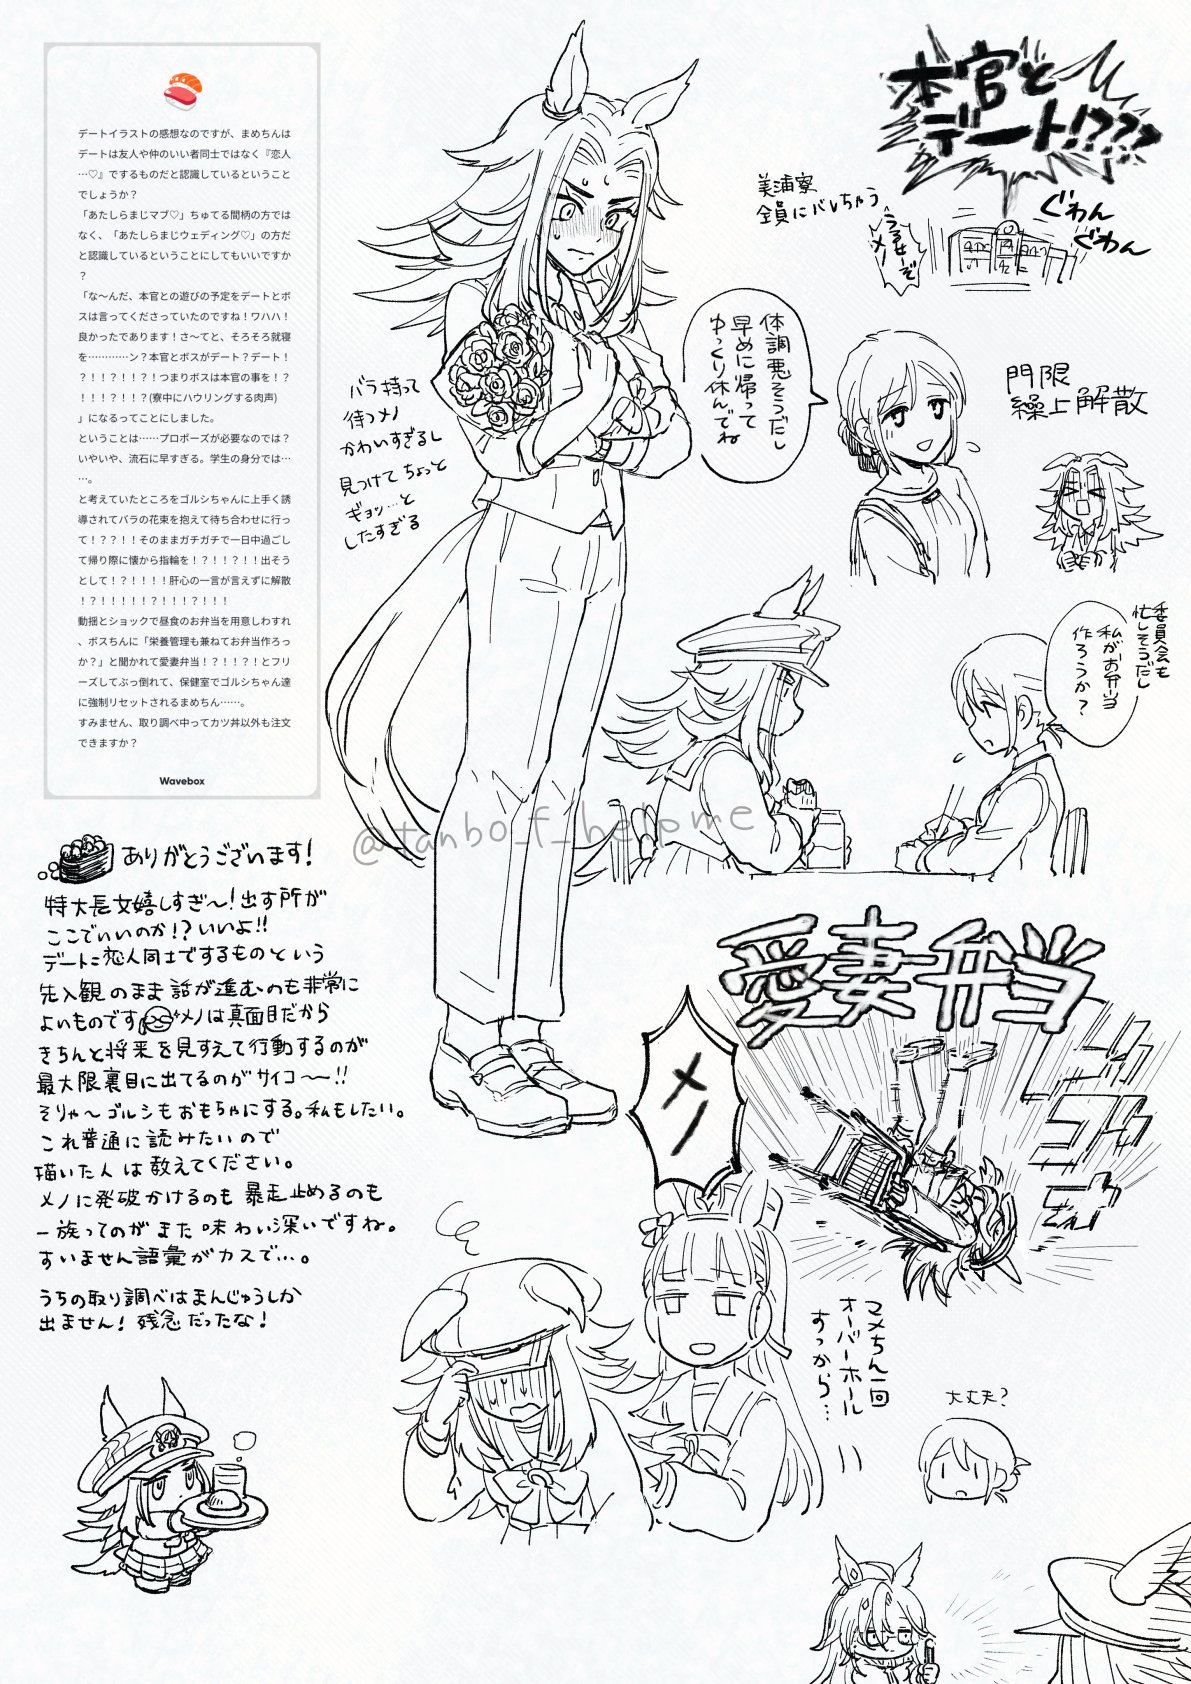 デートイラストの感想なのですが、まめちんは
デートは友人や仲のいい者同士ではなく『恋人
…♡』でするものだと認識しているということ
でしょうか？
「あたしらまじマブ♡」ちゅてる間柄の方では
なく、「あたしらまじウェディング♡」の方だ
と認識しているということにしてもいいですか
？
「な〜んだ、本官との遊びの予定をデートとボ
スは言ってくださっていたのですね！ワハハ！
良かったであります！さ〜てと、そろそろ就寝
を…………ン？本官とボスがデート？デート！
？！！？！！？！つまりボスは本官の事を！？
！！！？！！？(寮中にハウリングする肉声)
」になるってことにしました。
ということは……プロポーズが必要なのでは？
いやいや、流石に早すぎる。学生の身分では…
…。
と考えていたところをゴルシちゃんに上手く誘
導されてバラの花束を抱えて待ち合わせに行っ
て！？？！！そのままガチガチで一日中過ごし
て帰り際に懐から指輪を！？！！？！！出そう
として！？！！！！肝心の一言が言えずに解散
！？！！！！！？！！！？！！！
動揺とショックで昼食のお弁当を用意しわすれ
、ボスちんに「栄養管理も兼ねてお弁当作ろっ
か？」と聞かれて愛妻弁当！？！！？！とフリ
ーズしてぶっ倒れて、保健室でゴルシちゃん達
に強制リセットされるまめちん……。
すみません、取り調べ中ってカツ丼以外も注文
できますか？
Wavebox
ありがとうございます！
特大長文嬉しすぎ〜！出す所が
ここでいいのか！？いいよ!!
デートに恋人同士でするものという
先入観のまま話が進むのも非常に
よいものです メノは真面目だから
きちんと将来を見すえて行動するのが
最大限裏目に出てるのがサイコ〜!!
そりゃ〜ゴルシもおもちゃにする。私もしたい。
これ普通に読みたいので
描いた人は教えてください。
メノに発破かけるのも暴走止めるのも
一族ってのがまた味わい深いですね。
すいません語彙がカスで…。
うちの取り調べはまんじゅうしか
出ません！残念だったな！
本官と
デート!???
美浦寮
全員にバレちゃう
うるせーぞ
メノ
ぐわん
ぐわん
バラ持って
待つメノ
かわいすぎるし
見つけてちょっと
ギョッ…と
したすぎる
体調悪そうだし
早めに帰って
ゆっくり休んでね
門限
繰上解散
委員会も
忙しそうだし
私がお弁当
作ろうか？
@tanbo_f_helpme
愛妻弁当
メノ
マメちん一回
オーバーホール
すっから…
大丈夫？